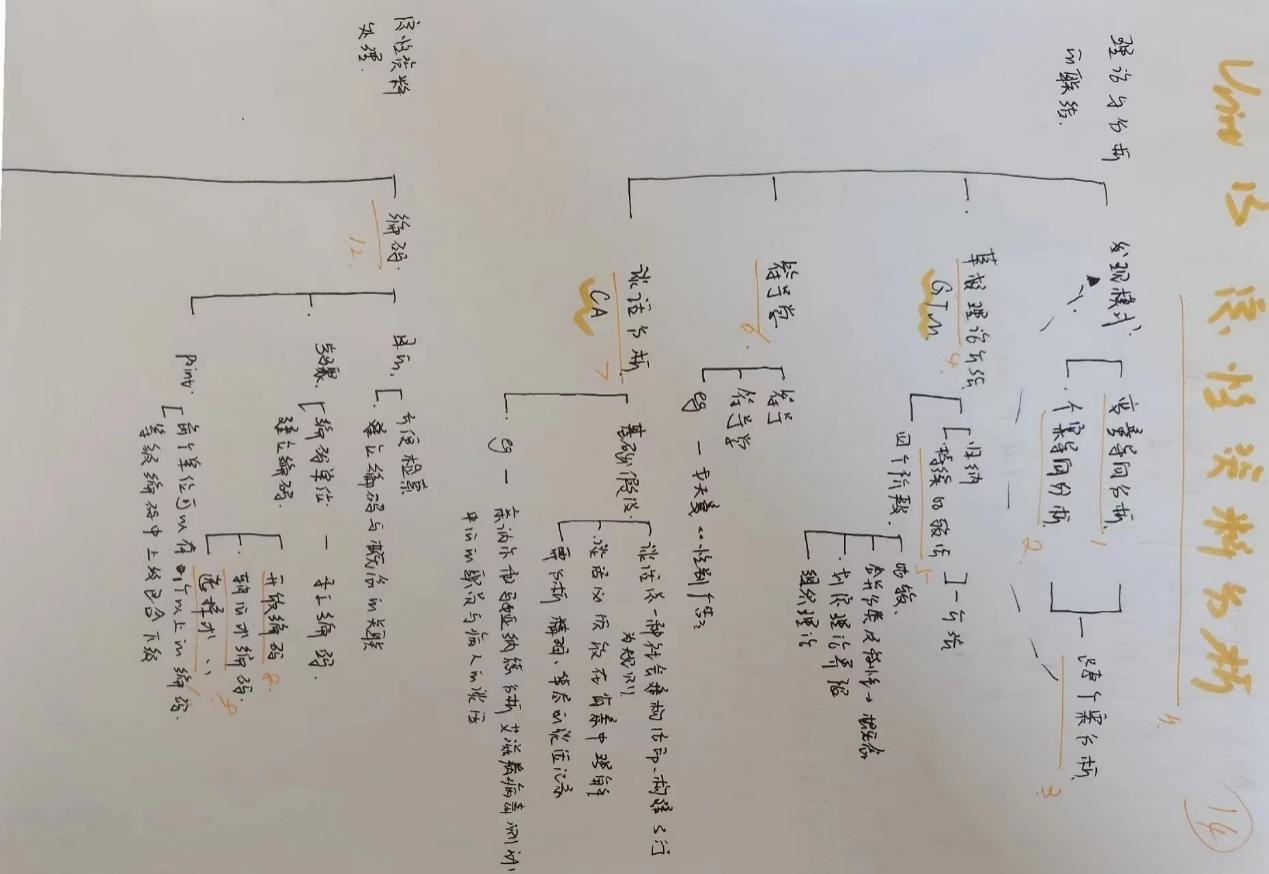 Unit 13 定性资料分析
11.
14
理论与分析
的联结.
发现模式
变量导向分析 1
个案导向分析. 2
跨个案分析 3
草根理论方法 4.
GTM
归纳
持续比较法 5
方法
四个阶段.
比较、
合并分类及特性→概念
划定理论界限
组织理论
符号学 6
符号
符号学
eg — 戈夫曼《性别广告》
谈话分析 7
CA
基础假设.
谈话是一种社会结构活动、构建了行
为规则
谈话必须放在背景中理解
要分析精确、草尽的谈话记录
eg — 亚纳
分析艾滋病病毒测试
中心的职员与病人的谈话
定性资料
处理.
编码. 12
目的.
方便检索
建立编码与概念的关联
步骤.
编码单位. — 手工编码.
建立编码.
开放编码 8.
轴心式编码. 9
选择式 〃
point.
每个单位可以有 个以上的编码.
等级编码中上级包含下级